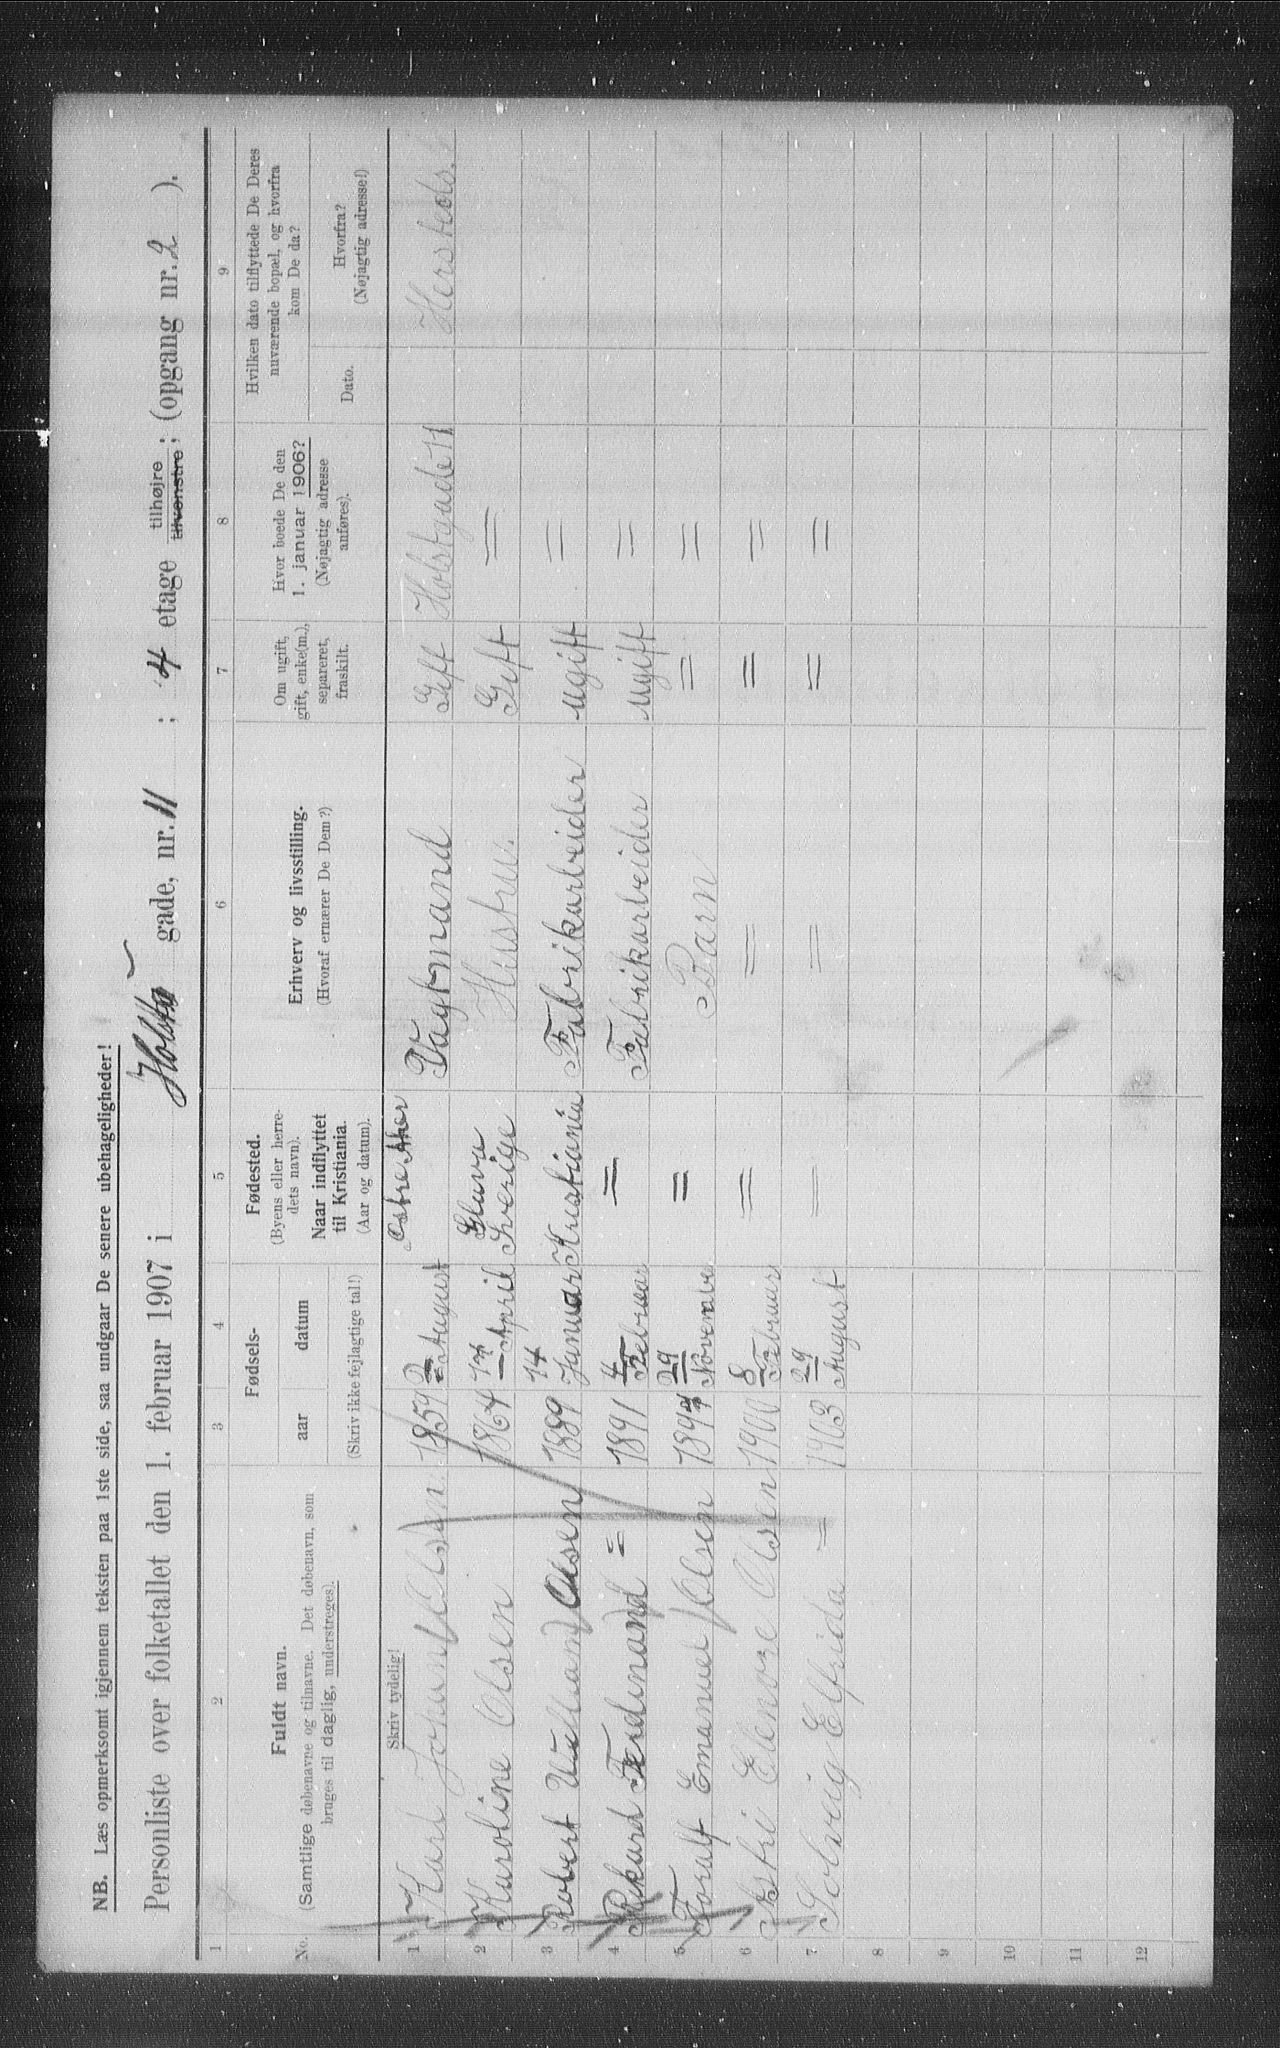 NB. Læs opmerksomt igjennem teksten paa 1ste side, saa undgaar De senere ubehageligheder!
Personliste over folketallet den 1. februar 1907 i Holsts gade, nr. 11 ; 4 etage tilhøjre tilvenstre ; (opgang nr. 2 ).
1 2 3 4 5 6 7 8 9
No.
Fuldt navn.
(Samtlige døbenavne og tilnavne. Det døbenavn, som
bruges til daglig, understreges).
Fødsels-
aar datum
(Skriv ikke fejlagtige tal!)
Fødested.
(Byens eller herre-
dets navn).
Naar indflyttet
til Kristiania.
(Aar og datum).
Erhverv og livsstilling.
(Hvoraf ernærer De Dem?)
Om ugift,
gift, enke(m.),
separeret,
fraskilt.
Hvor boede De den
1. januar 1906?
(Nøjagtig adresse
anføres).
Hvilken dato tilflyttede De Deres
nuværende bopæl, og hvorfra
kom De da?
Dato.
Hvorfra?
(Nøjagtig adresse!)
Skriv tydelig!
1 Karl Johan Olsen 1859 2 August Østre Aker Vagtmand Gift Holstgade 11
2 Karoline Olsen 1864 14 April Glava Sverige Hustru. Gift =
3 Robert Wilham Olsen 1889 14 Januar Kristiania Fabrikarbeider ugift =
4 Rikard Ferdinand = 1891 4 Februar = Fabrikarbeider ugift =
5 Toralf Emanuel Olsen 1894 29 Novembe = Barn = =
6 Astri Elenore Olsen 1900 8 Februar = = = =
7 Solveig Elfrida = 1903 29 August = = = =
8
9
10
11
12